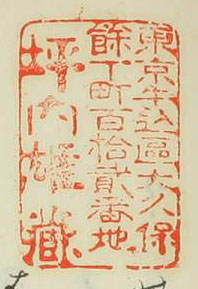 東京牛込區大久保
餘丁町百拾貳番地
坪内雄蔵